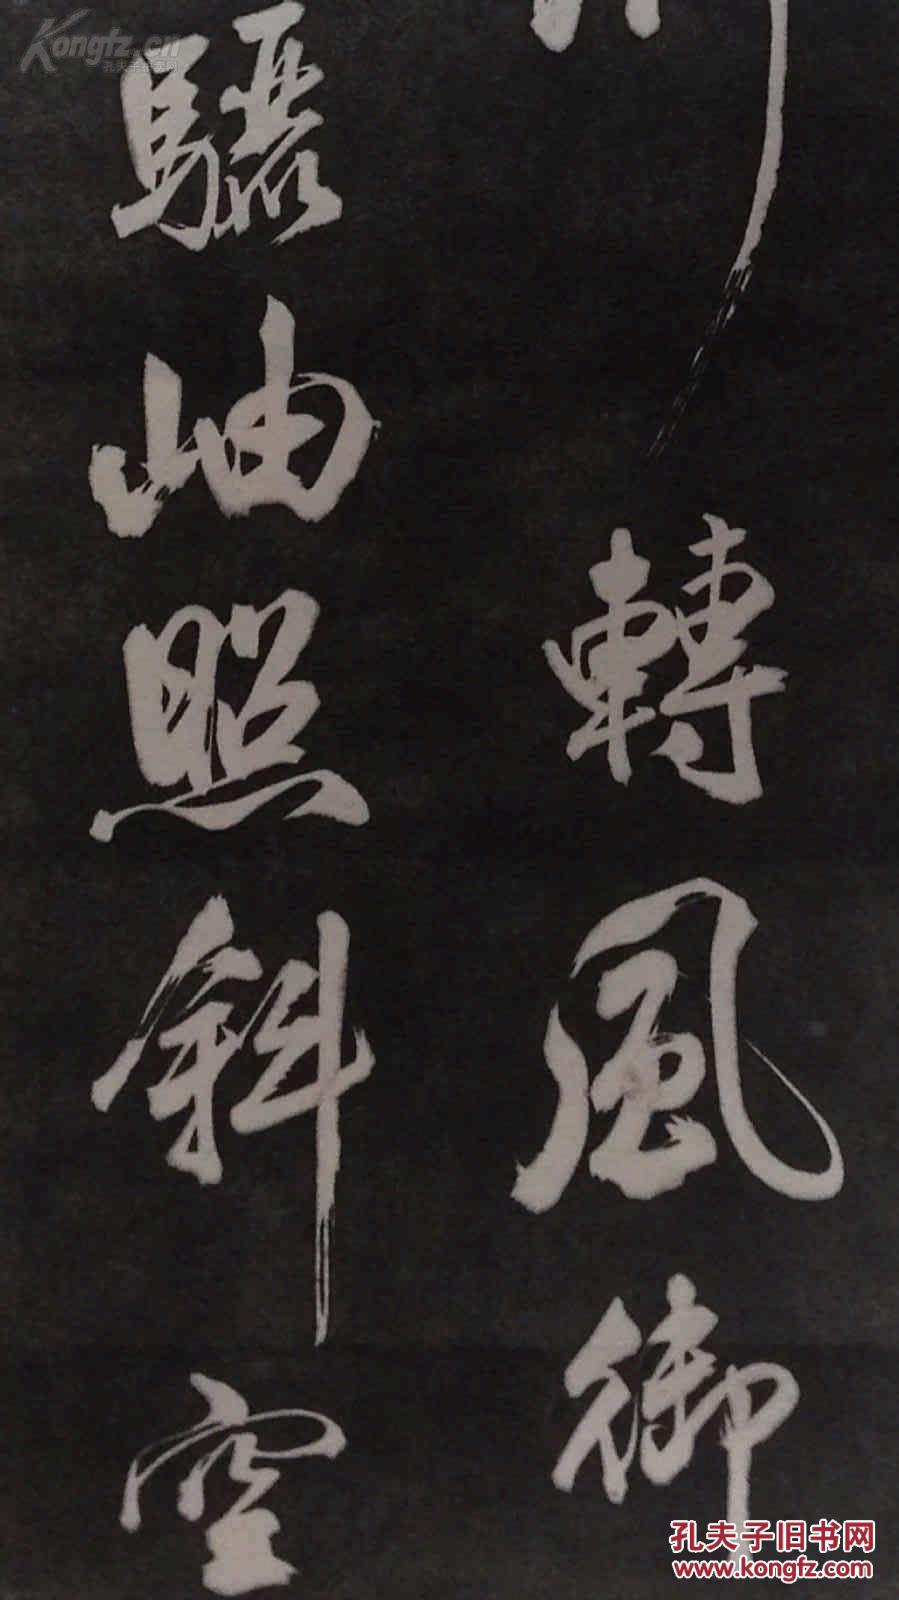 轉風御
驪岫照斜空
Kongfz.cn
孔夫子旧书网
孔夫子旧书网
www.kongfz.com